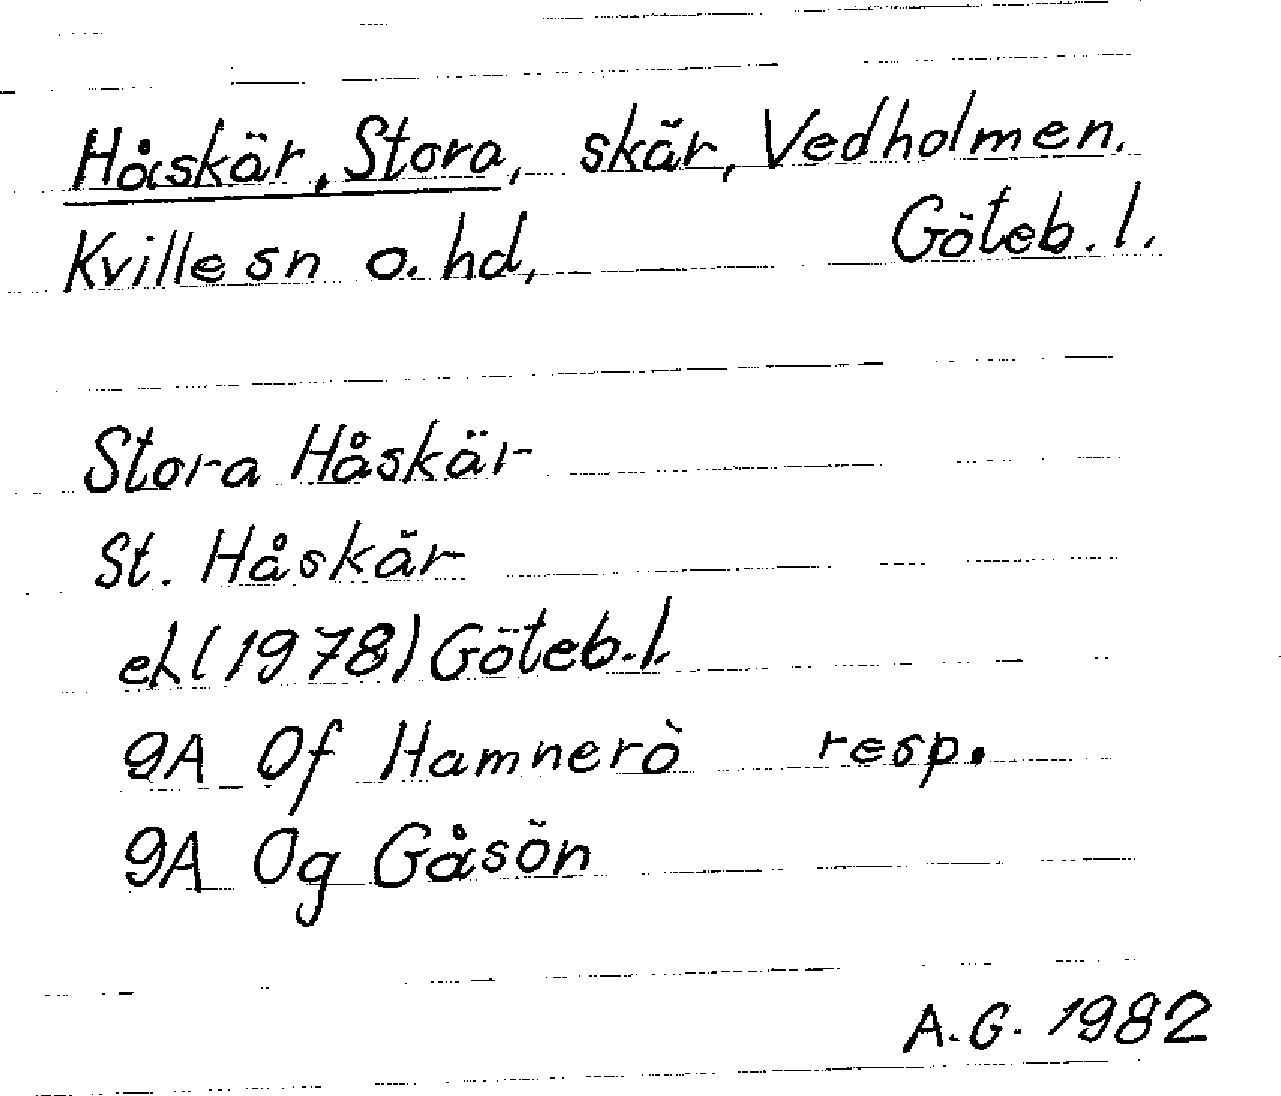 Håskär, Stora, skär, Vedholmen.
Kville sn o. hd, Göteb. l.
Stora Håskär
St. Håskär
ek (1978) Göteb. l.
9A Of Hamnerö resp.
9A Og Gåsön
A. G. 1982